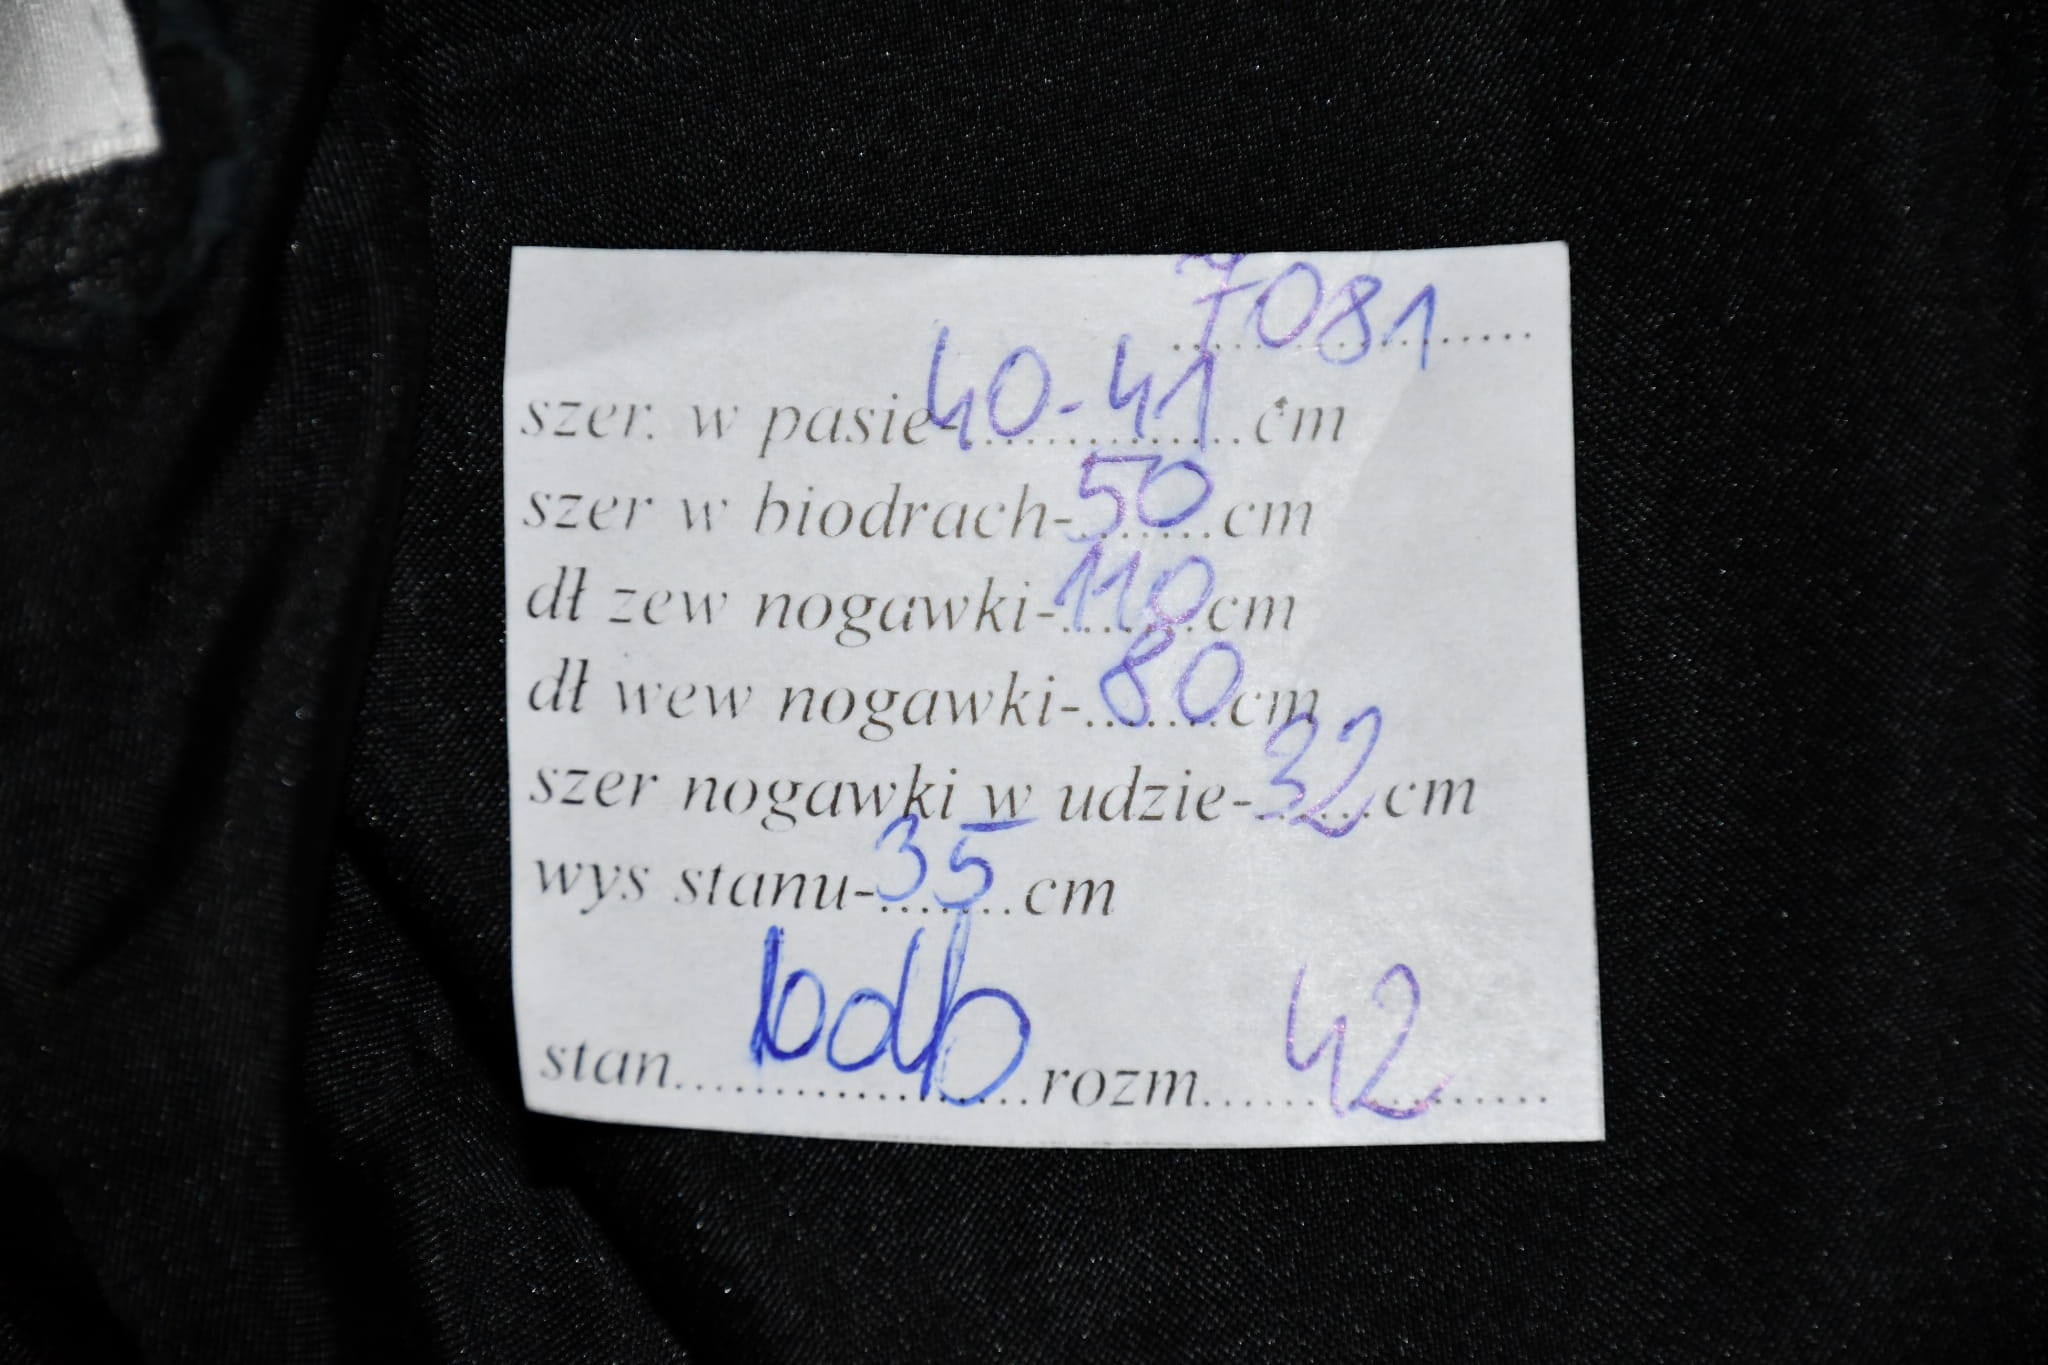 7081
szer. w pasie-40-41 cm
szer w biodrach-50 cm
dł zew nogawki-110 cm
dł wew nogawki-80 cm
szer nogawki w udzie-32 cm
wys stanu-35 cm
stan bdb rozm 42